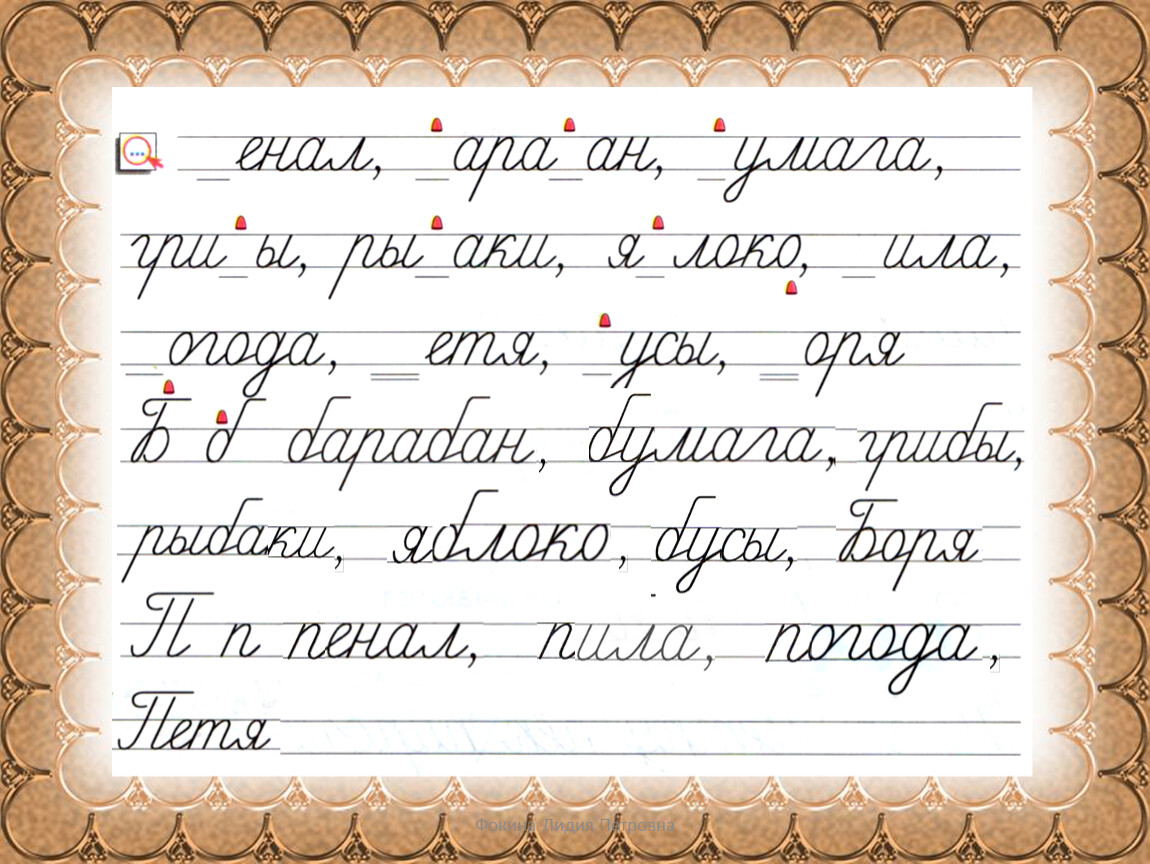 _енал, _ара_ан, _умага,
гри_ы, ры_аки, я_локо, _ила,
_огода, _етя, _усы, _оря
Б б барабан, бумага, грибы,
рыбаки, яблоко, бусы, Боря
П п пенал, пила, погода,
Петя
Фокина Лидия Петровна